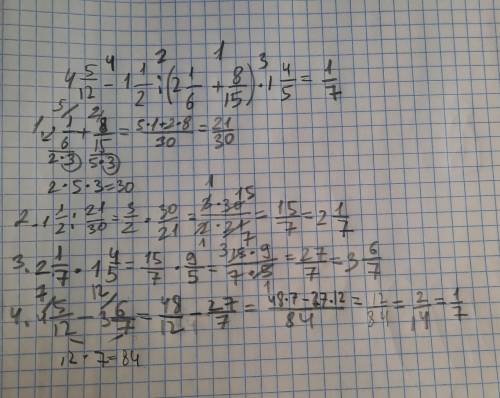 4 5/12 - 1 1/2 : (2 1/6 + 8/15) · 1 4/5 = 1/7
1. 2 1/6 + 8/15 = (5·1+2·8)/30 = 21/30
2·3 5·3
2·5·3=30
2. 1 1/2 : 21/30 = 3/2 · 30/21 = (3·30)/(2·21) = 15/7 = 2 1/7
3. 2 1/7 · 1 4/5 = 15/7 · 9/5 = (15·9)/(7·5) = 27/7 = 3 6/7
4. 5/12 - 3 6/7 = 48/12 - 27/7 = (48·7-27·12)/84 = 12/84 = 2/14 = 1/7
12·7=84